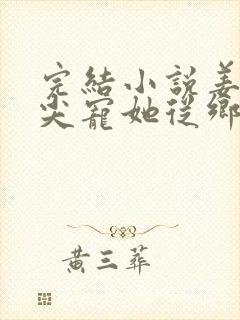 完結小說姜
尖寵她從鄉
黃三葬